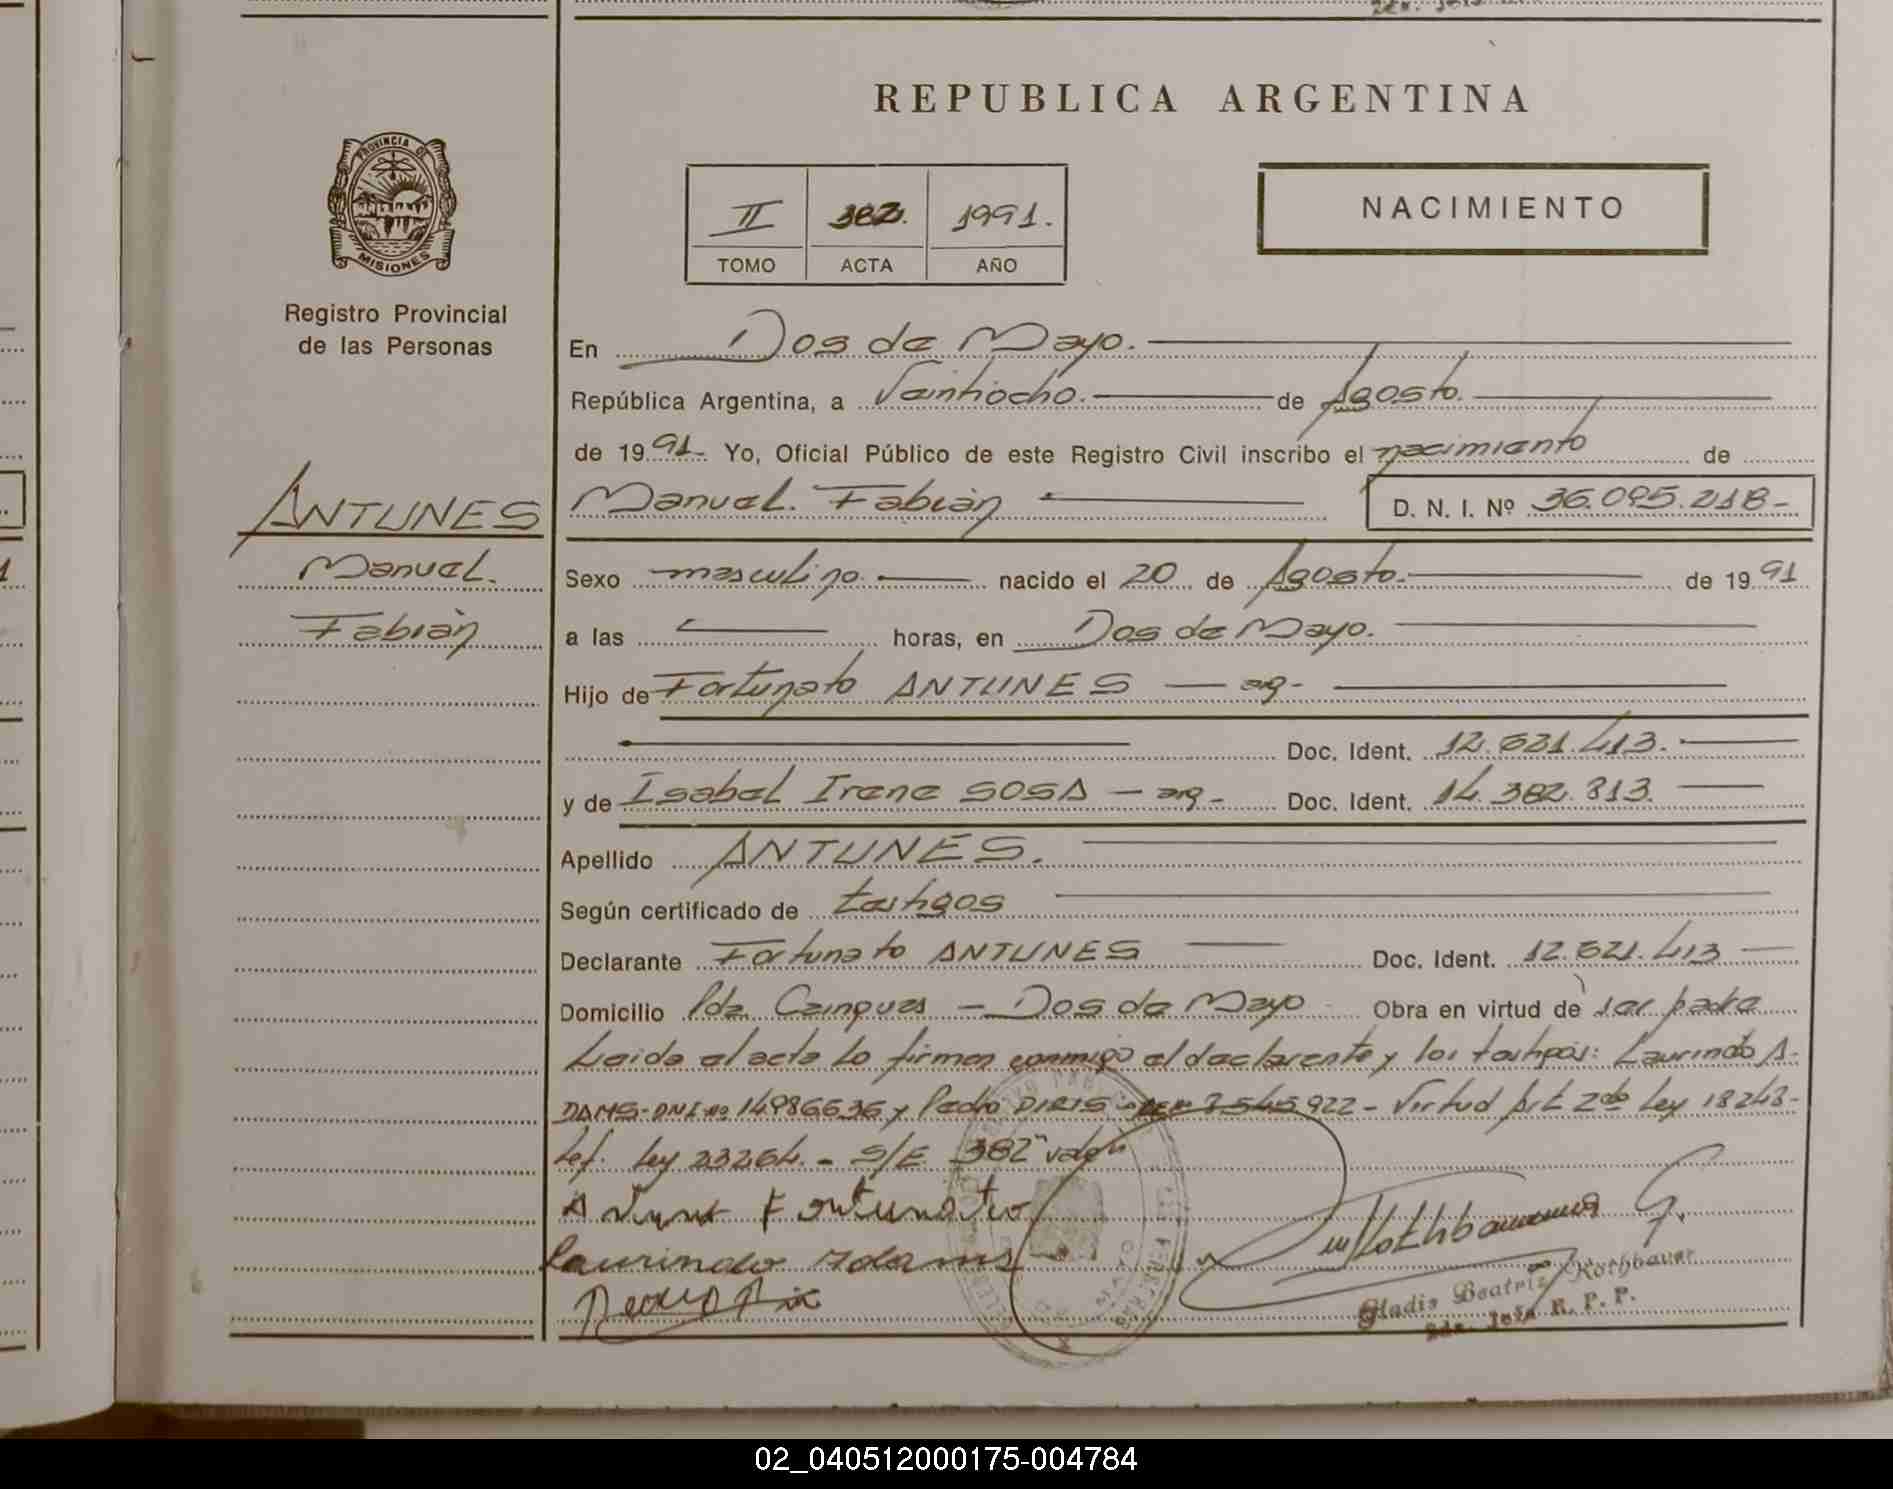 REPUBLICA ARGENTINA
PROVINCIA DE
MISIONES
Registro Provincial
de las Personas
II 382. 1991.
TOMO ACTA AÑO
NACIMIENTO
En Dos de Mayo.
República Argentina, a Veintiocho. de Agosto.
de 1991- Yo, Oficial Público de este Registro Civil inscribo el nacimiento de
ANTUNES
Manuel. Fabián D. N. I. Nº 36.095.218-
Manuel.
Fabián
Sexo masculino. nacido el 20 de Agosto. de 1991
a las horas, en Dos de Mayo.
Hijo de Fortunato ANTUNES — arg-
Doc. Ident. 12.621.413.
y de Isabel Irene SOSA — arg- Doc. Ident. 14.382.813.
Apellido ANTUNES.
Según certificado de testigos
Declarante Fortunato ANTUNES Doc. Ident. 12.621.413
Domicilio Pda. — Dos de Mayo Obra en virtud de ser padre
Leida el acta lo firman conmigo el declarante y los testigos: Laurindo A-
DAMS-DNI-no 14986636 y Pedro 922- Virtud Art 2do Ley 18248-
Ley 23264.- S/E. 382" vale
Fortunato
Laurindo Adams
Pedro
Rothbauer G.
Gladis Beatriz Rothbauer
R. P. P.
02_040512000175-004784